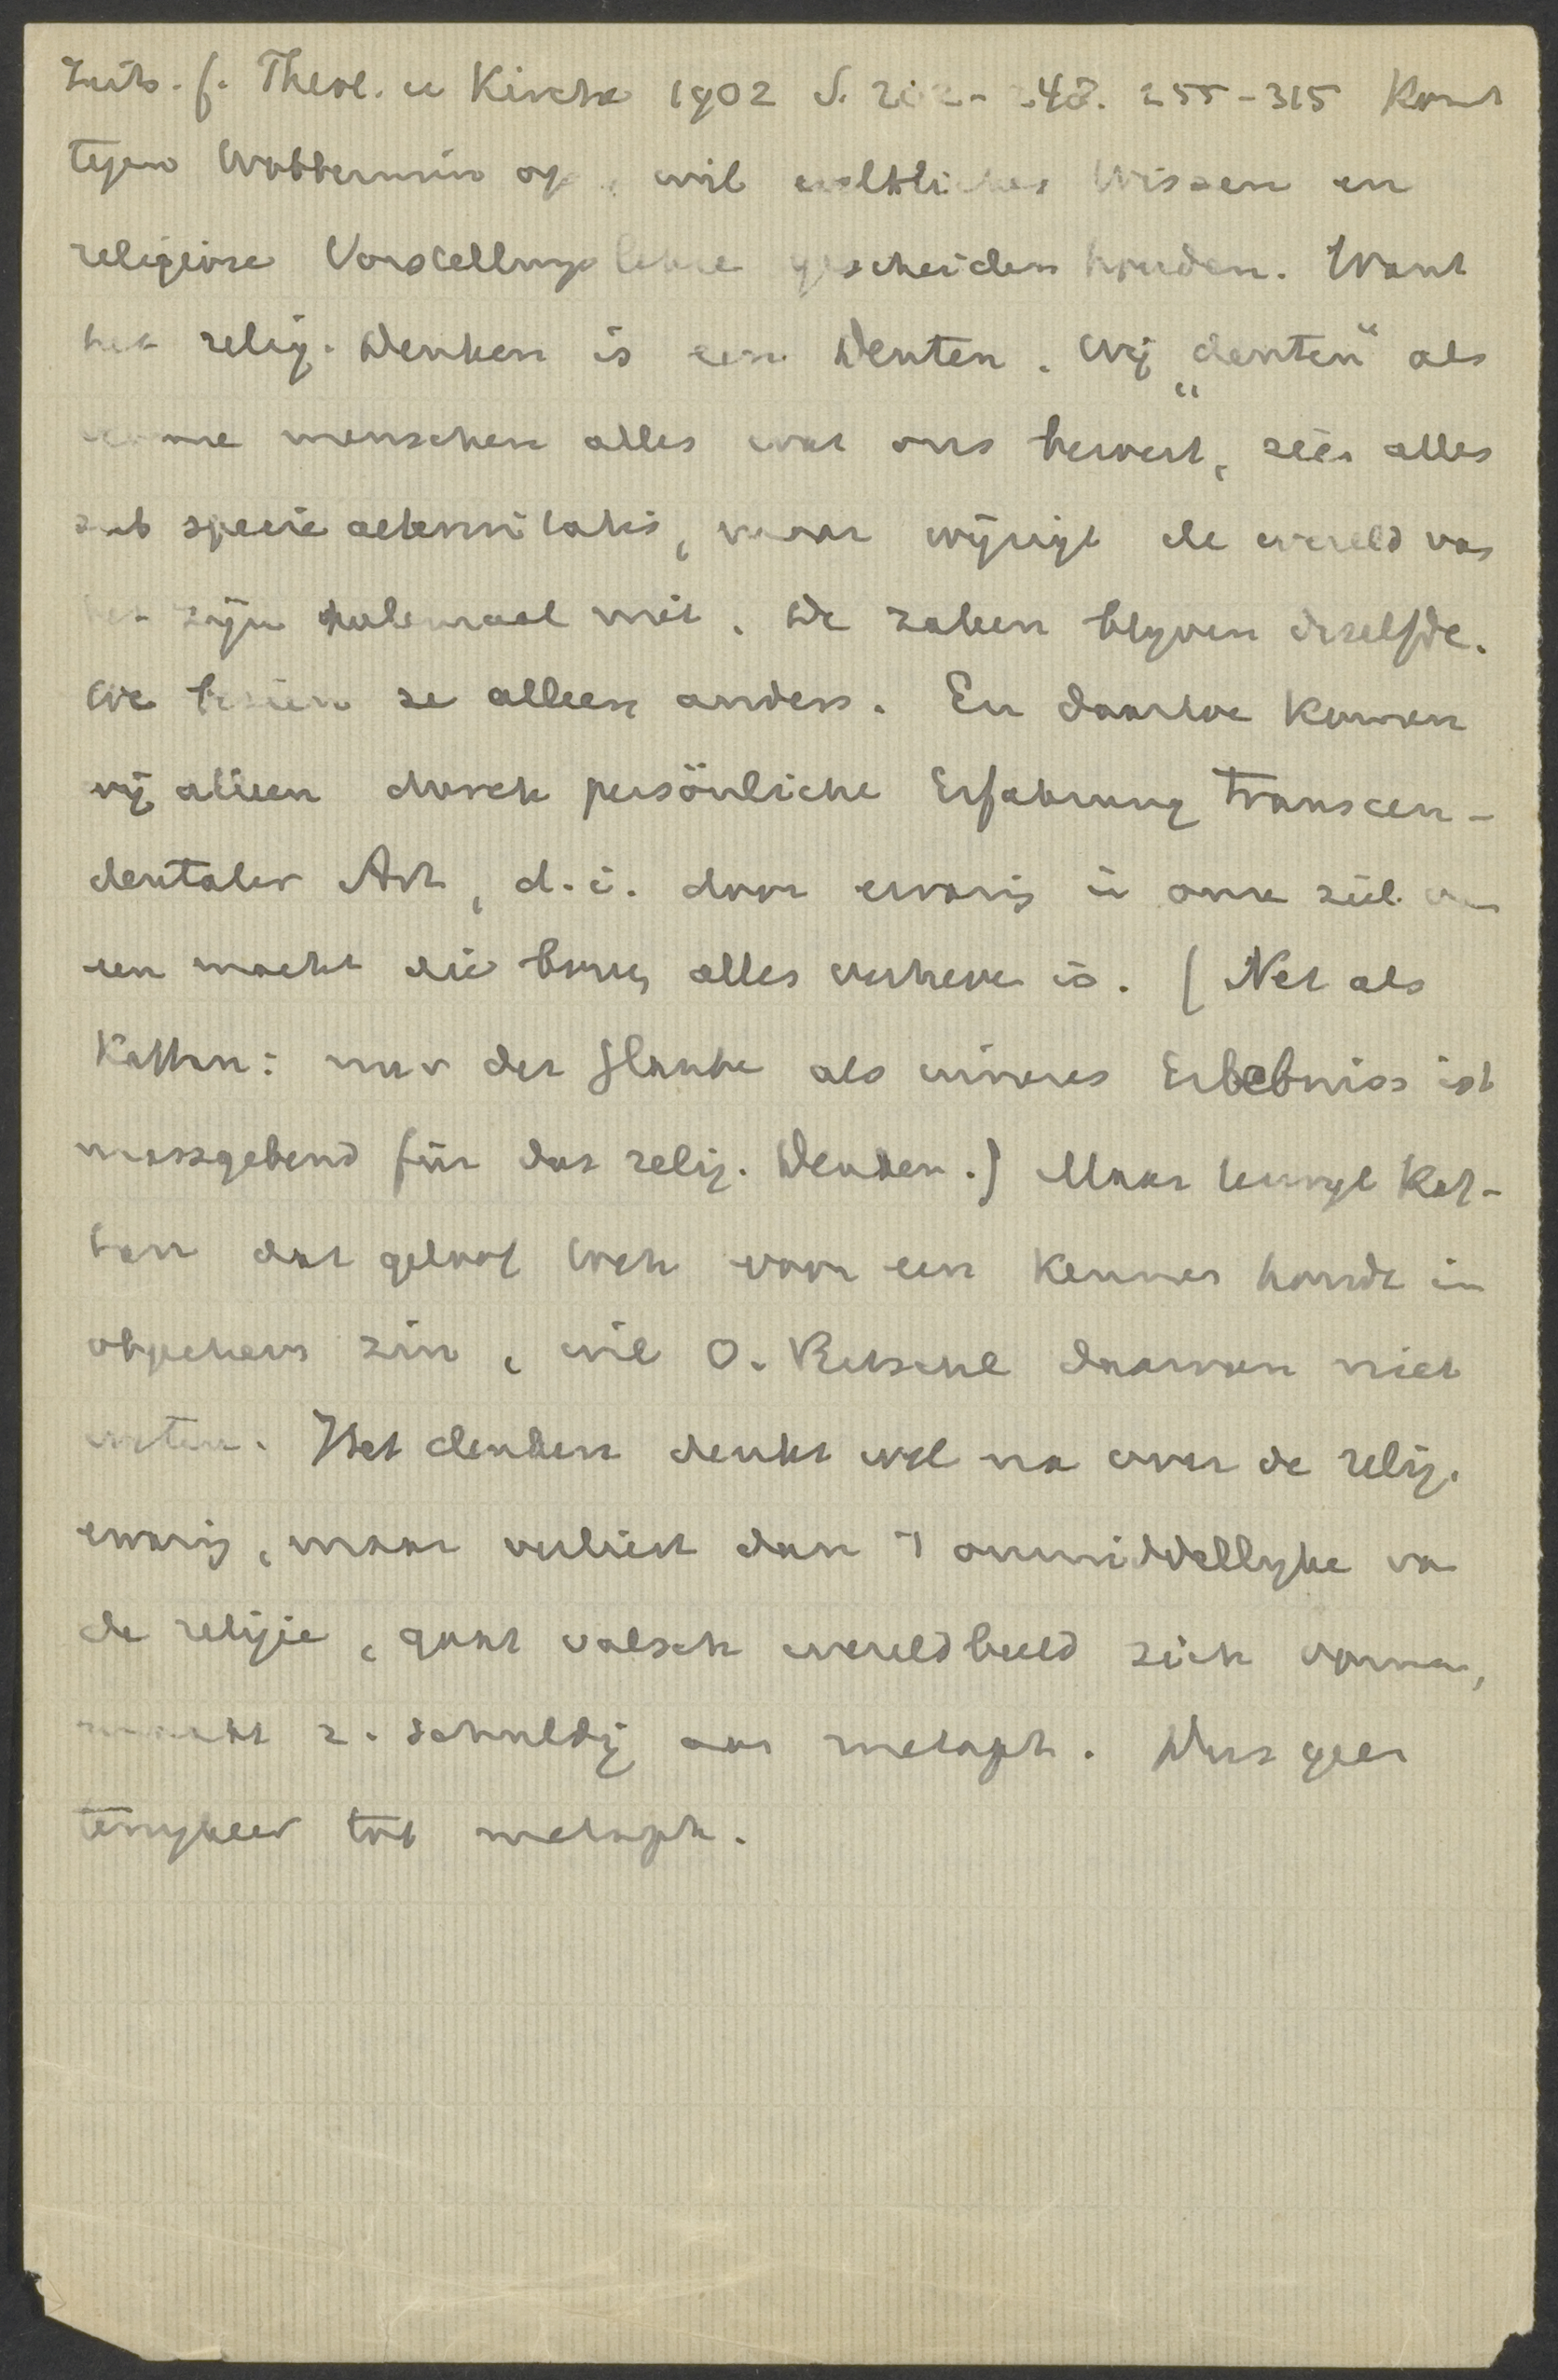 Zeits. f. Theol. u Kirche 1902 S. 202-248. 255-315 Komt
tegen Wobbermin op, wil weltliches Wissen en
religiöse Vorstellungslehre gescheiden houden. Want
het relig. Denken is een Deuten. Wij „deuten“ als
vrome menschen alles wat ons bewust, zien alles
sub specie aeternitatis, maar wijzigt de wereld van
het zijn helemaal niet. De zaken blyven dezelfde.
We bezien ze alleen anders. En daartoe komen
wij alleen durch persönliche Erfahrung transcen-
dentaler Art, d.i. door ervarig in onze ziel van
een macht die boven alles verheven is. (Net als
Kaftan: nur der Glaube als inneres Erlebniss ist
massgebend für das relig. Denken.) Maar terwyl Kaf-
tan dat geloof toch voor een kennen houdt in
objectieven zin, wil O. Ritschl daarvan niet
weten. Het denken denkt wel na over de relig.
ervarig, maar verliest dan 't onmiddellyke van
de religie, gaat valsch wereldbeeld zich vormen,
maakt z. schuldig aan metaph. Dus geen
terugkeer tot metaph.